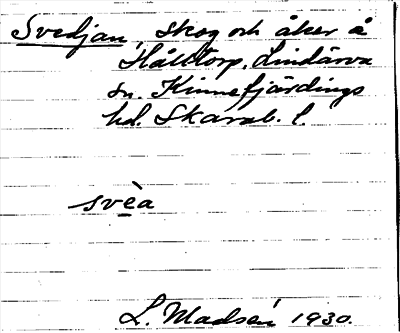 Svedjan, skog och åker å
Hålltorp, Lindärva
sn. Kinnefjärdings
hd. Skarab. l.
svèa
L. Madsén 1930.